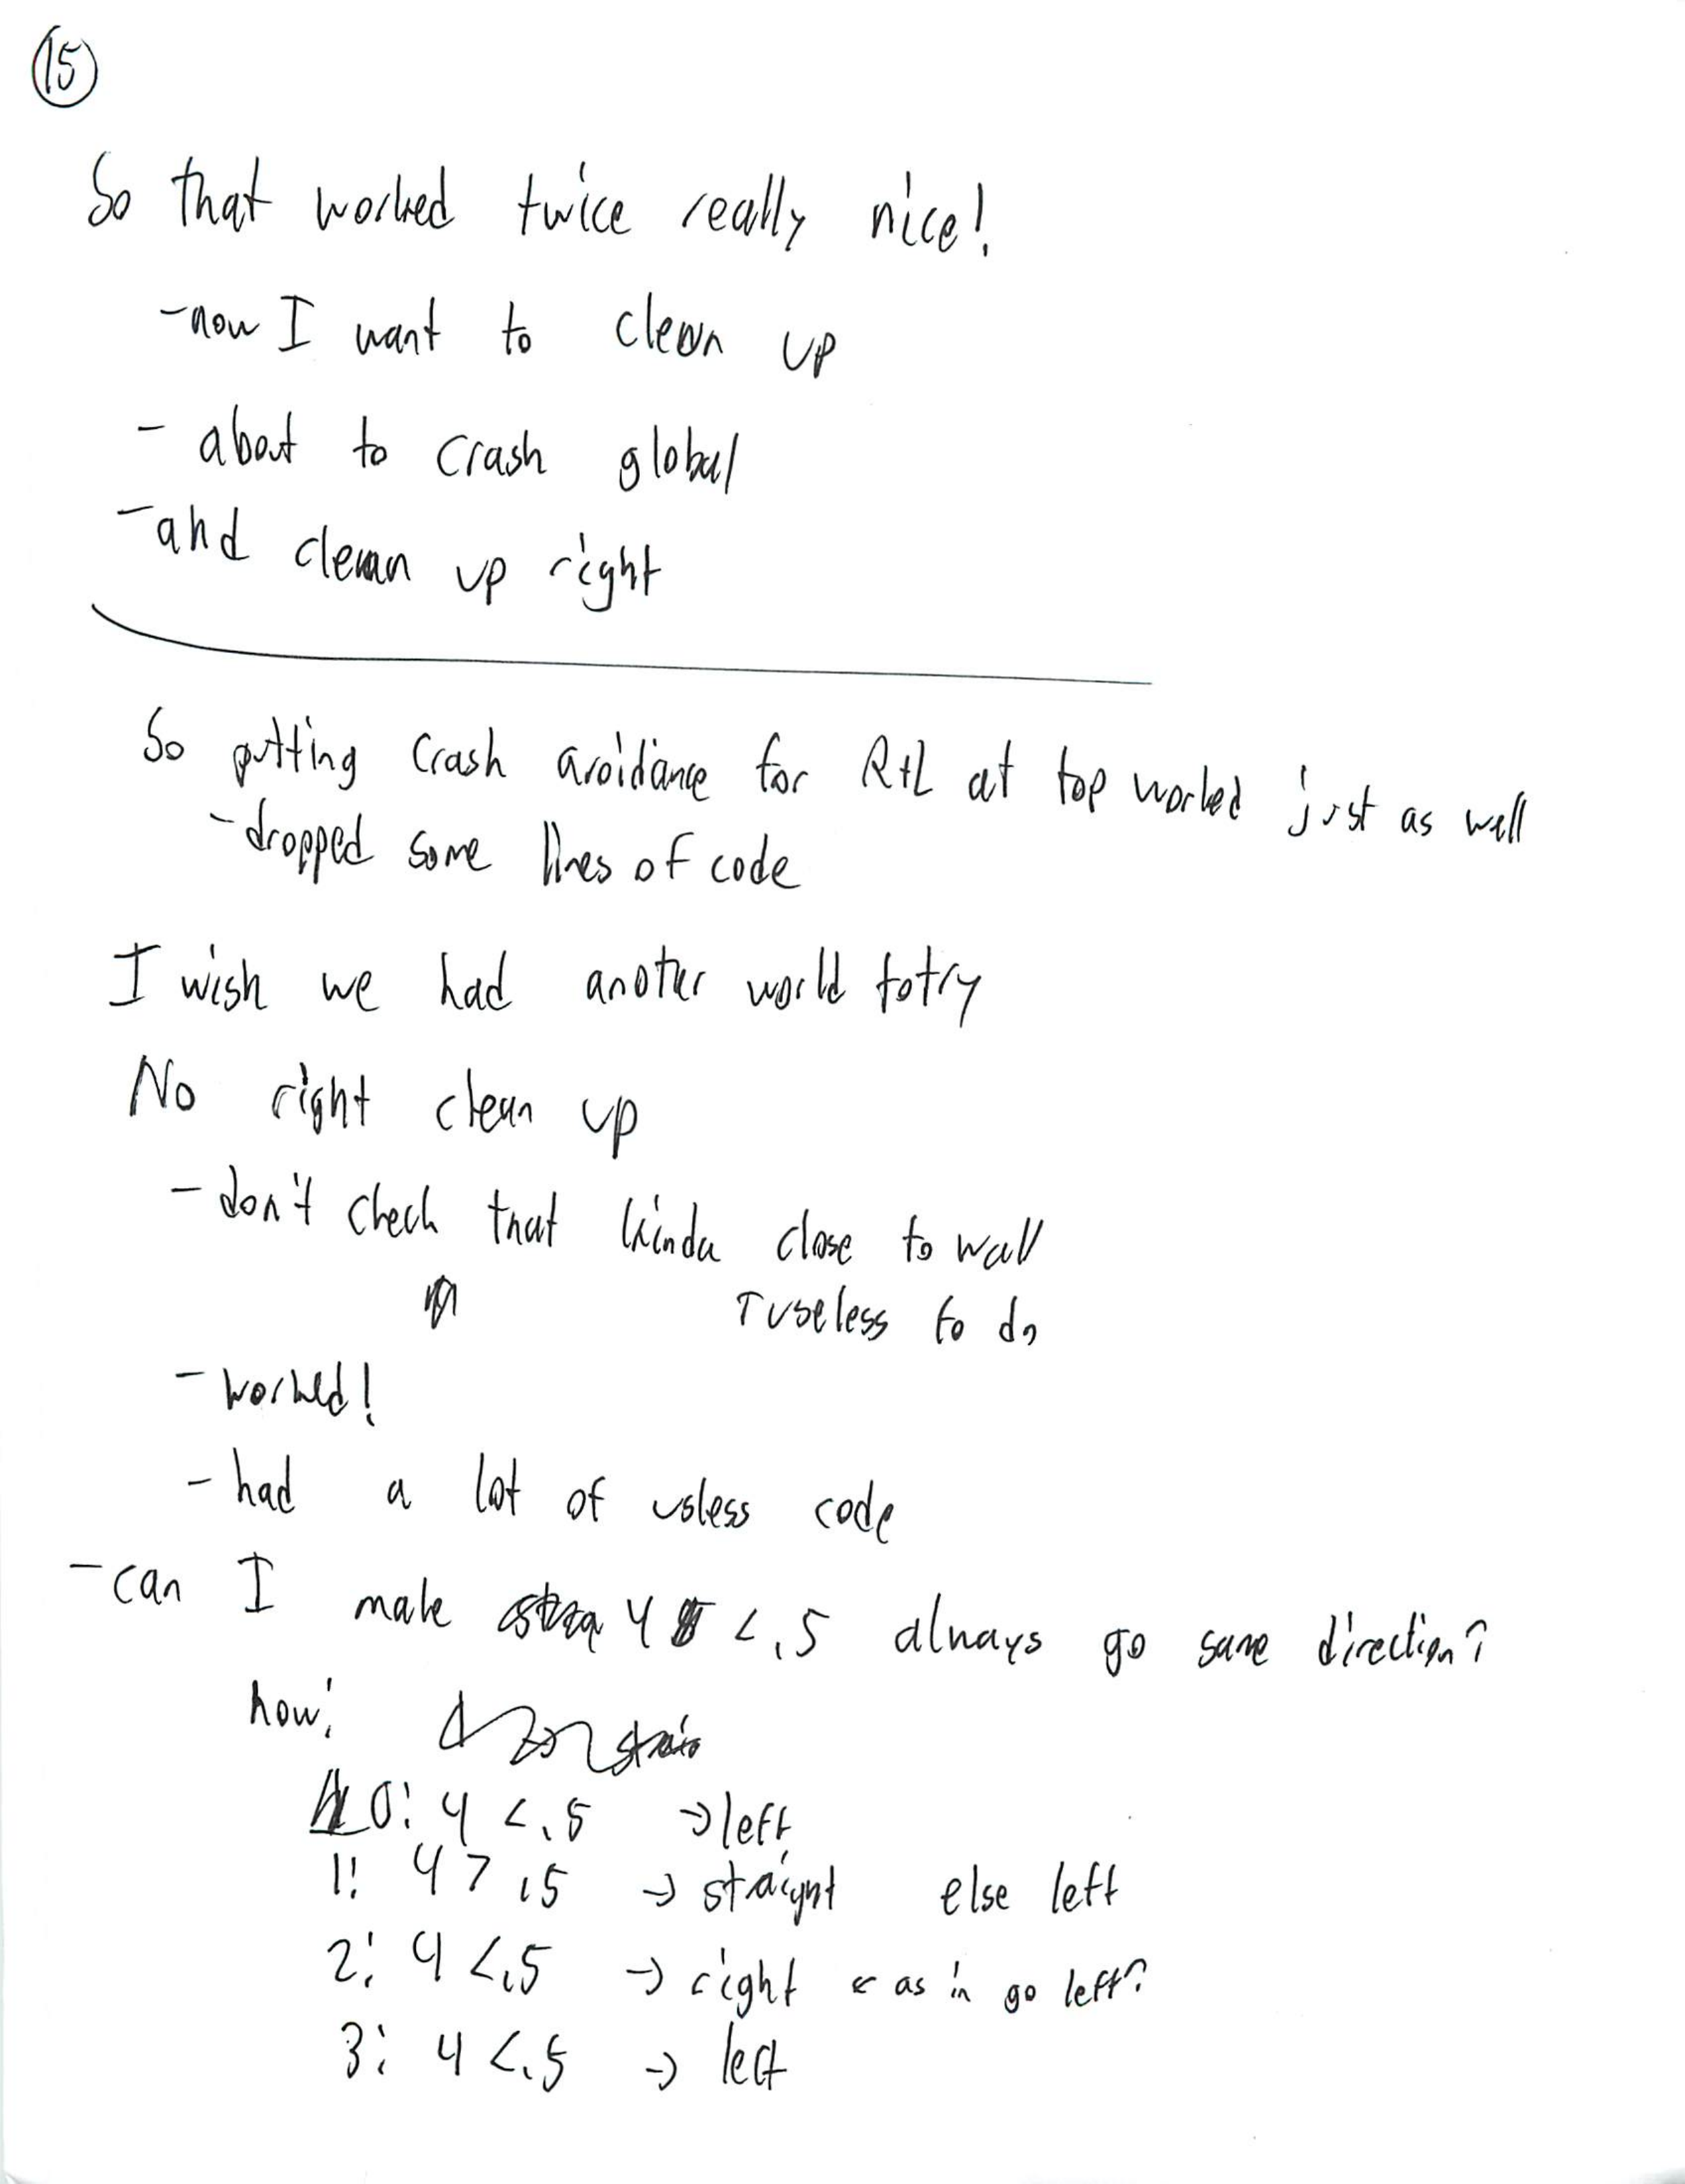 15
So that worked twice really nice!
-now I want to clean up
- about to crash global
-and clean up right
So putting crash avoidance for R+L at top worked just as well
-dropped some lines of code
I wish we had another world to try
No right clean up
- don't check that kinda close to wall
↑ useless to do
- worked!
- had a lot of usless code
-can I make 4 <.5 always go same direction?
how:
0: 4 <.5 → left
1: 4 > .5 → straight else left
2: 4 <.5 → right ← as in go left?
3: 4 <.5 → left